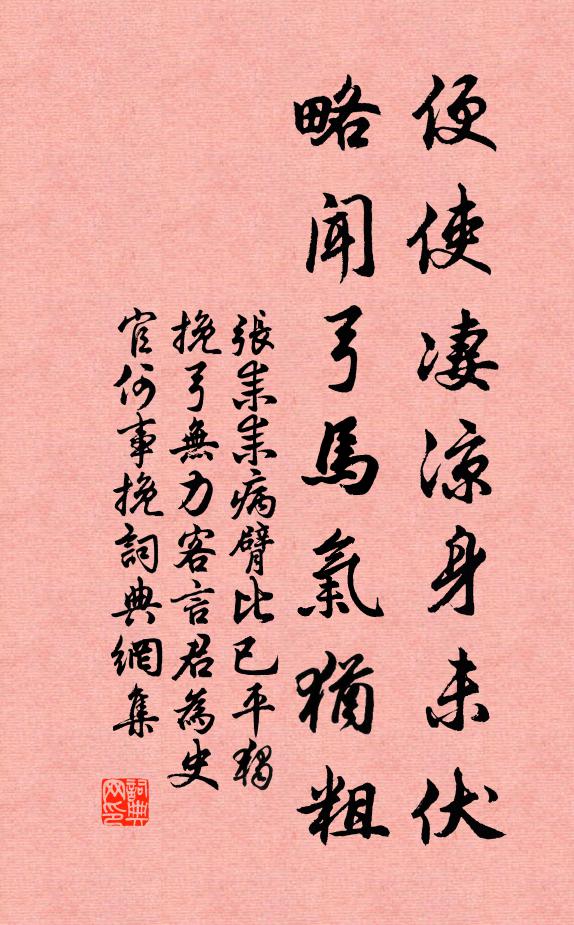 便使凄涼身未伏
略聞弓馬氣猶粗
張耒耒病臂比已平獨
挽弓無力客言君為史
官何事挽詞典網集
詞典网印